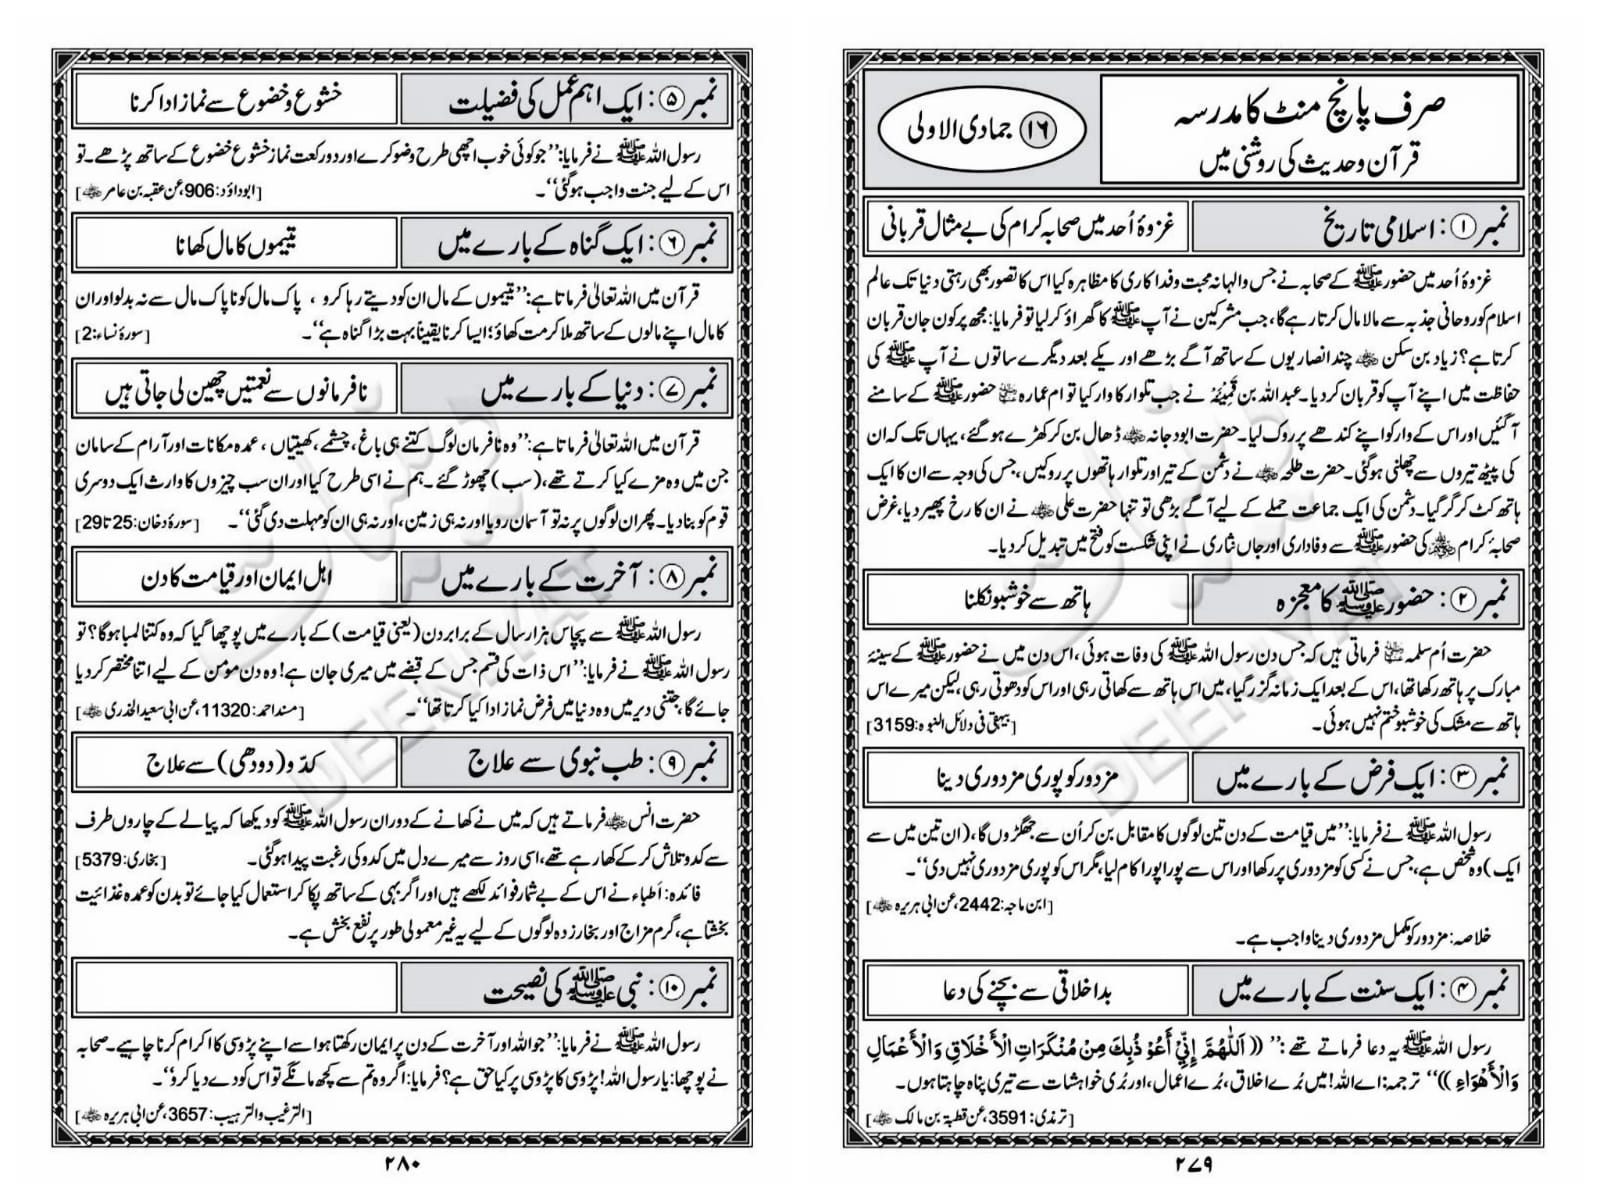 صرف پانچ منٹ کا مدرسہ
قرآن و حدیث کی روشنی میں
۱۶ جمادی الاولی
نمبر ۱: اسلامی تاریخ
غزوۂ اُحد میں صحابہ کرام کی بے مثال قربانی
غزوۂ اُحد میں حضور ﷺ کے صحابہ نے جس والہانہ محبت وفداکاری کا مظاہرہ کیا اس کا تصور بھی رہتی دنیا تک عالم
اسلام کو روحانی جذبہ سے مالا مال کرتا رہے گا، جب مشرکین نے آپ ﷺ کا گھراؤ کرلیا تو فرمایا: مجھ پر کون جان قربان
کرتا ہے؟ زیاد بن سکن ؓ چند انصاریوں کے ساتھ آگے بڑھے اور یکے بعد دیگرے ساتوں نے آپ ﷺ کی
حفاظت میں اپنے آپ کو قربان کردیا۔ عبداللہ بن قمیئہ نے جب تلوار کا وار کیا تو ام عمارہ ؓ حضور ﷺ کے سامنے
آگئیں اور اس کے وار کو اپنے کندھے پر روک لیا۔ حضرت ابودجانہ ؓ ڈھال بن کر کھڑے ہوگئے، یہاں تک کہ ان
کی پیٹھ تیروں سے چھلنی ہوگئی۔ حضرت طلحہ ؓ نے دشمن کے تیر اور تلوار ہاتھوں پر روکیں، جس کی وجہ سے ان کا ایک
ہاتھ کٹ کر گرگیا۔ دشمن کی ایک جماعت حملے کے لیے آگے بڑھی تو تنہا حضرت علی ؓ نے ان کا رخ پھیر دیا، غرض
صحابۂ کرام ؓ کی حضور ﷺ سے وفاداری اور جاں نثاری نے اپنی شکست کو فتح میں تبدیل کردیا۔
نمبر ۲: حضور ﷺ کا معجزہ
ہاتھ سے خوشبو نکلنا
حضرت اُم سلمہ ؓ فرماتی ہیں کہ جس دن رسول اللہ ﷺ کی وفات ہوئی، اس دن میں نے حضور ﷺ کے سینۂ
مبارک پر ہاتھ رکھا تھا، اس کے بعد ایک زمانہ گزر گیا، میں اس ہاتھ سے کھاتی رہی اور اس کو دھوتی رہی، لیکن میرے اس
ہاتھ سے مشک کی خوشبو ختم نہیں ہوئی۔ [بیہقی فی دلائل النبوہ: 3159]
نمبر ۳: ایک فرض کے بارے میں
مزدور کو پوری مزدوری دینا
رسول اللہ ﷺ نے فرمایا: ”میں قیامت کے دن تین لوگوں کا مقابل بن کر اُن سے جھگڑوں گا، (ان تین میں سے
ایک) وہ شخص ہے، جس نے کسی کو مزدوری پر رکھا اور اس سے پورا پورا کام لیا، مگر اس کو پوری مزدوری نہیں دی“۔
[ابن ماجہ: 2442، عن ابی ہریرہ ؓ]
خلاصہ: مزدور کو مکمل مزدوری دینا واجب ہے۔
نمبر ۴: ایک سنت کے بارے میں
بداخلاقی سے بچنے کی دعا
رسول اللہ ﷺ یہ دعا فرماتے تھے: ”((اَللّٰهُمَّ إِنِّيْ أَعُوْذُبِكَ مِنْ مُنْكَرَاتِ الْأَخْلَاقِ وَالْأَعْمَالِ
وَالْأَهْوَاءِ))“ ترجمہ: اے اللہ! میں بُرے اخلاق، بُرے اعمال، اور بُری خواہشات سے تیری پناہ چاہتا ہوں۔
[ترمذی: 3591، عن قطبۃ بن مالک ؓ]
۲۷۹
نمبر ۵: ایک اہم عمل کی فضیلت
خشوع و خضوع سے نماز ادا کرنا
رسول اللہ ﷺ نے فرمایا: ”جو کوئی خوب اچھی طرح وضو کرے اور دو رکعت نماز خشوع خضوع کے ساتھ پڑھے۔ تو
اس کے لیے جنت واجب ہوگئی“۔ [ابوداؤد: 906، عن عقبہ بن عامر ؓ]
نمبر ۶: ایک گناہ کے بارے میں
یتیموں کا مال کھانا
قرآن میں اللہ تعالیٰ فرماتا ہے: ”یتیموں کے مال ان کو دیتے رہا کرو ، پاک مال کو ناپاک مال سے نہ بدلو اور ان
کا مال اپنے مالوں کے ساتھ ملا کر مت کھاؤ؛ ایسا کرنا یقیناً بہت بڑا گناہ ہے“۔ [سورۂ نساء: 2]
نمبر ۷: دنیا کے بارے میں
نافرمانوں سے نعمتیں چھین لی جاتی ہیں
قرآن میں اللہ تعالیٰ فرماتا ہے: ”وہ نافرمان لوگ کتنے ہی باغ، چشمے، کھیتیاں ، عمدہ مکانات اور آرام کے سامان
جن میں وہ مزے کیا کرتے تھے، (سب) چھوڑ گئے۔ ہم نے اسی طرح کیا اور ان سب چیزوں کا وارث ایک دوسری
قوم کو بنا دیا۔ پھر ان لوگوں پر نہ تو آسمان رویا اور نہ ہی زمین، اور نہ ہی ان کو مہلت دی گئی“۔ [سورۂ دخان: 25 تا 29]
نمبر ۸: آخرت کے بارے میں
اہل ایمان اور قیامت کا دن
رسول اللہ ﷺ سے پچاس ہزار سال کے برابر دن (یعنی قیامت) کے بارے میں پوچھا گیا کہ وہ کتنا لمبا ہوگا؟ تو
رسول اللہ ﷺ نے فرمایا: ”اس ذات کی قسم جس کے قبضے میں میری جان ہے! وہ دن مومن کے لیے اتنا مختصر کردیا
جائے گا، جتنی دیر میں وہ دنیا میں فرض نماز ادا کیا کرتا تھا“۔ [مسند احمد: 11320، عن ابی سعید الخدری ؓ]
نمبر ۹: طب نبوی سے علاج
کدّو (دودھی) سے علاج
حضرت انس ؓ فرماتے ہیں کہ میں نے کھانے کے دوران رسول اللہ ﷺ کو دیکھا کہ پیالے کے چاروں طرف
سے کدو تلاش کرکے کھا رہے تھے، اسی روز سے میرے دل میں کدو کی رغبت پیدا ہوگئی۔ [بخاری: 5379]
فائدہ: اَطباء نے اس کے بے شمار فوائد لکھے ہیں اور اگر بہی کے ساتھ پکا کر استعمال کیا جائے تو بدن کو عمدہ غذائیت
بخشتا ہے، گرم مزاج اور بخار زدہ لوگوں کے لیے یہ غیر معمولی طور پر نفع بخش ہے۔
نمبر ۱۰: نبی ﷺ کی نصیحت
رسول اللہ ﷺ نے فرمایا: ”جو اللہ اور آخرت کے دن پر ایمان رکھتا ہو اسے اپنے پڑوسی کا اکرام کرنا چاہیے۔ صحابہ
نے پوچھا: یا رسول اللہ! پڑوسی کا پڑوسی پر کیا حق ہے؟ فرمایا: اگر وہ تم سے کچھ مانگے تو اس کو دے دیا کرو“۔
[الترغیب والترہیب: 3657، عن ابی ہریرہ ؓ]
۲۸۰
دینیات
DEENIYAT
دینیات
DEENIYAT